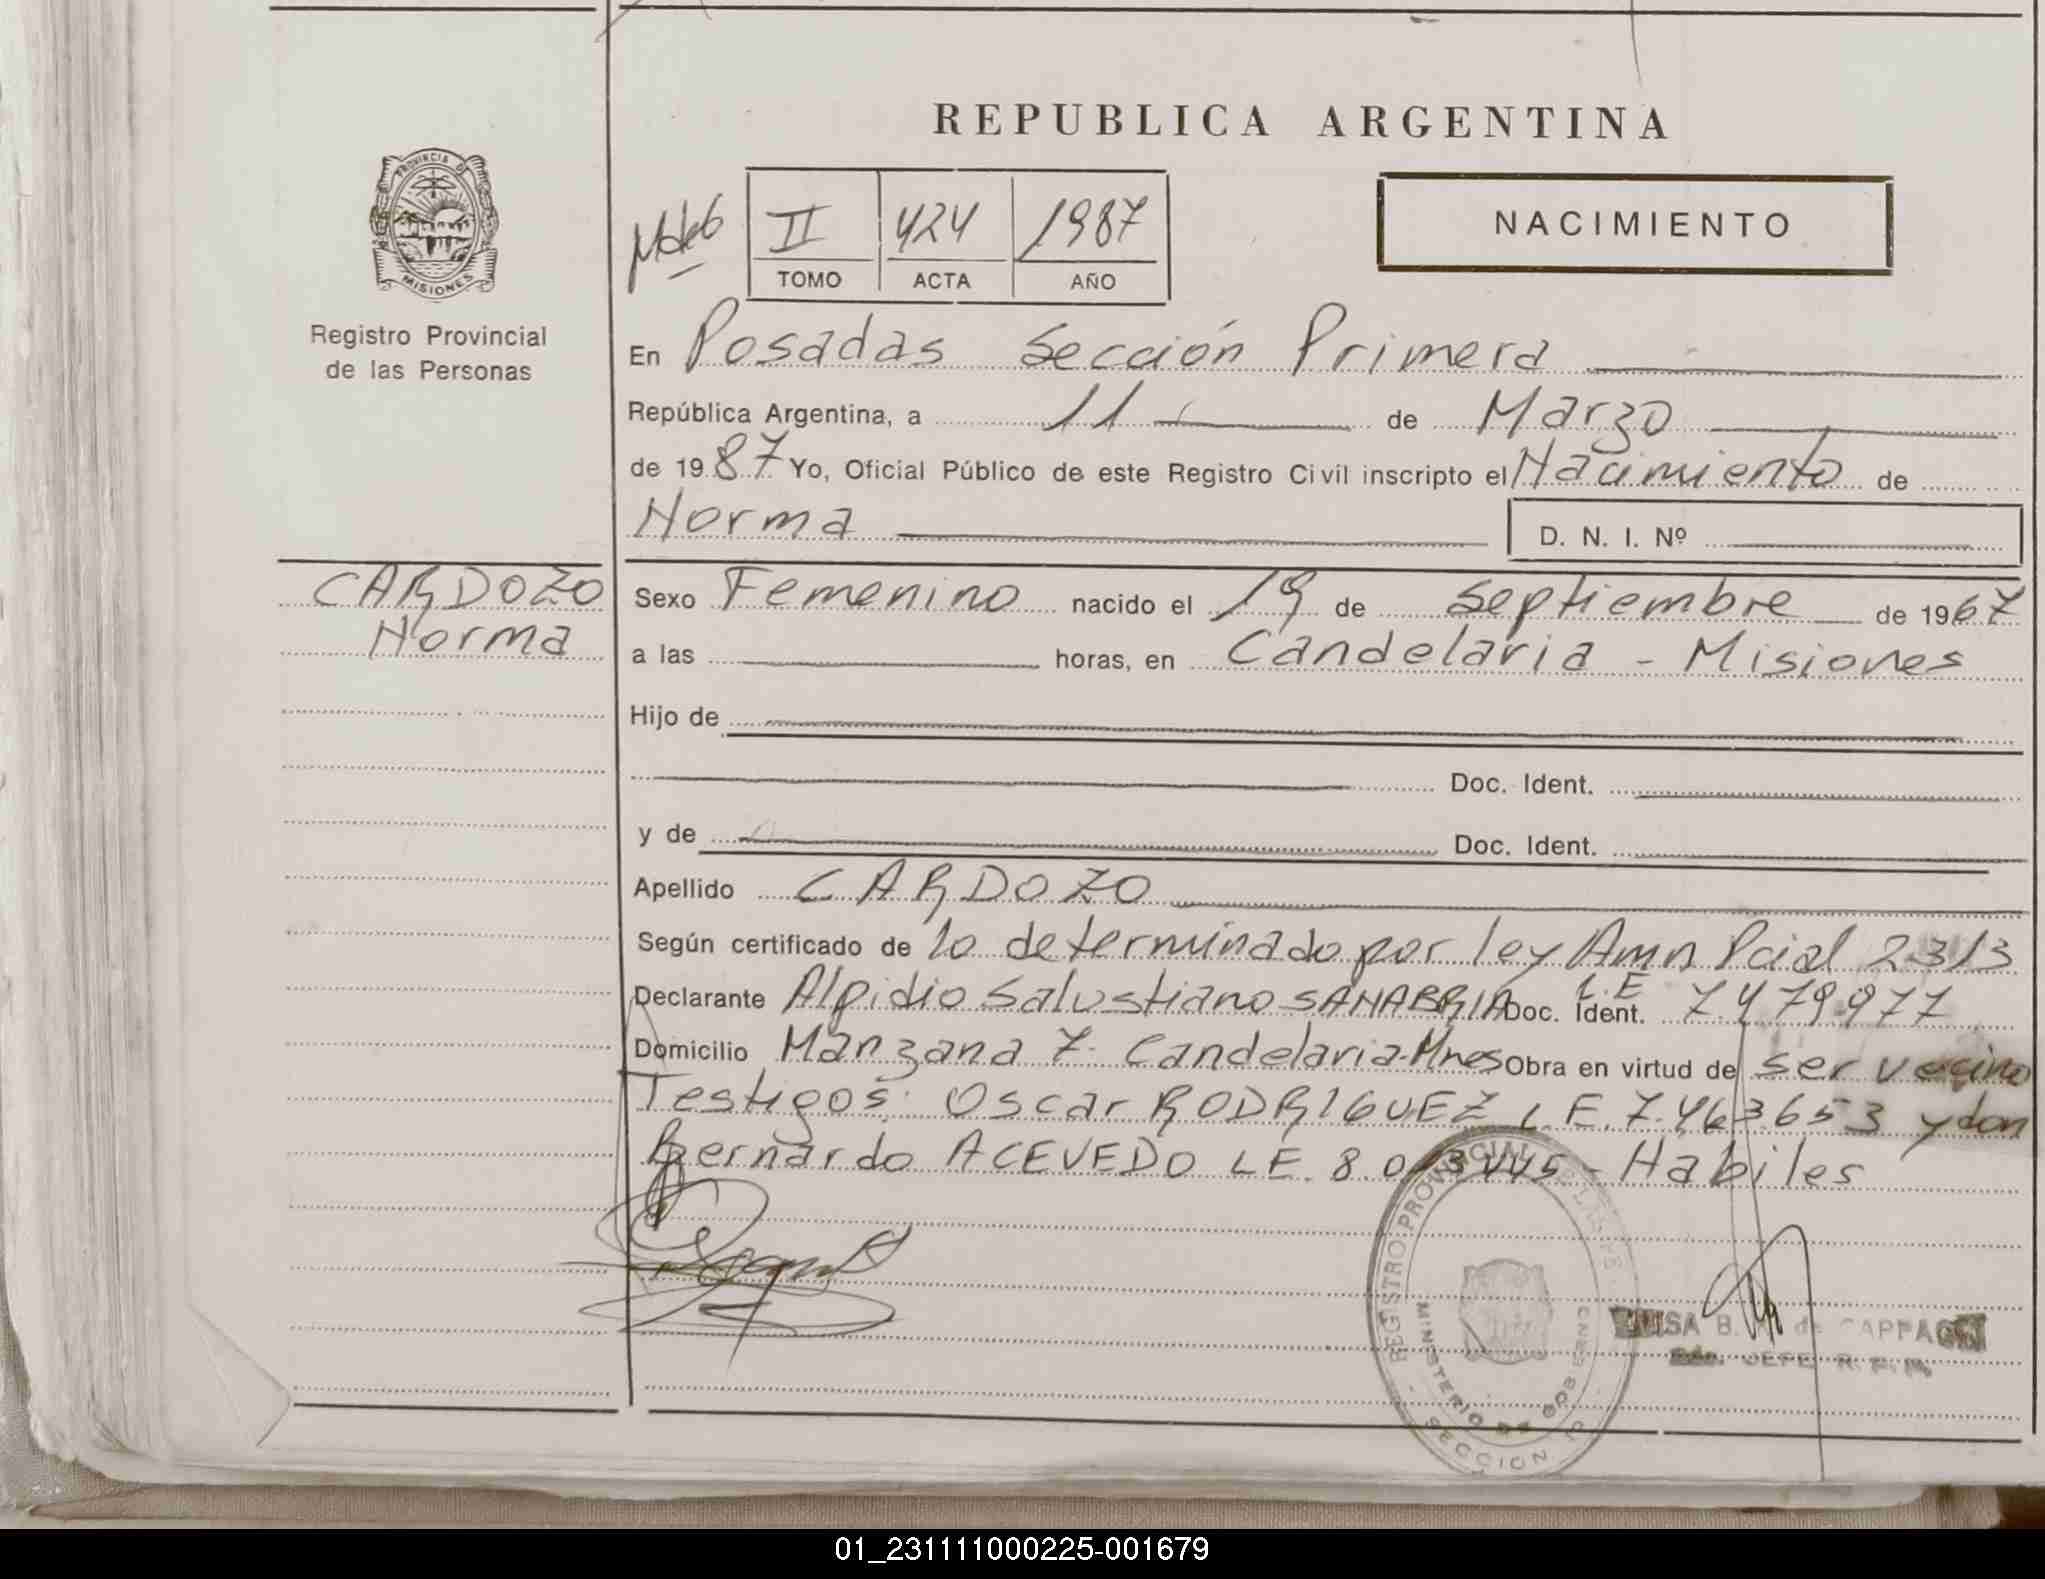 REPUBLICA ARGENTINA
PROVINCIA DE MISIONES
Registro Provincial
de las Personas
II 424 1987
TOMO ACTA AÑO
NACIMIENTO
En Posadas Sección Primera
República Argentina, a 11 de Marzo
de 1987 Yo, Oficial Público de este Registro Civil inscripto el Nacimiento de
Norma D. N. I. Nº
CARDOZO
Norma
Sexo Femenino nacido el 19 de Septiembre de 1967
a las horas, en Candelaria - Misiones
Hijo de
Doc. Ident.
y de Doc. Ident.
Apellido CARDOZO
Según certificado de lo determinado por ley Amn Pcial 2313
Declarante Alpidio Salustiano SANABRIA Doc. Ident. L.E 7.479.977
Domicilio Manzana 7. Candelaria-Mnes Obra en virtud de ser vecino
Testigos: Oscar RODRIGUEZ L.E. 7.463.653 y don
Bernardo ACEVEDO L.E. - Habiles
REGISTRO PROVINCIAL DE LAS PE
MINISTERIO DE GOBIERNO
SECCION 1ª
B. de
JEFE R. P. P.
01_231111000225-001679